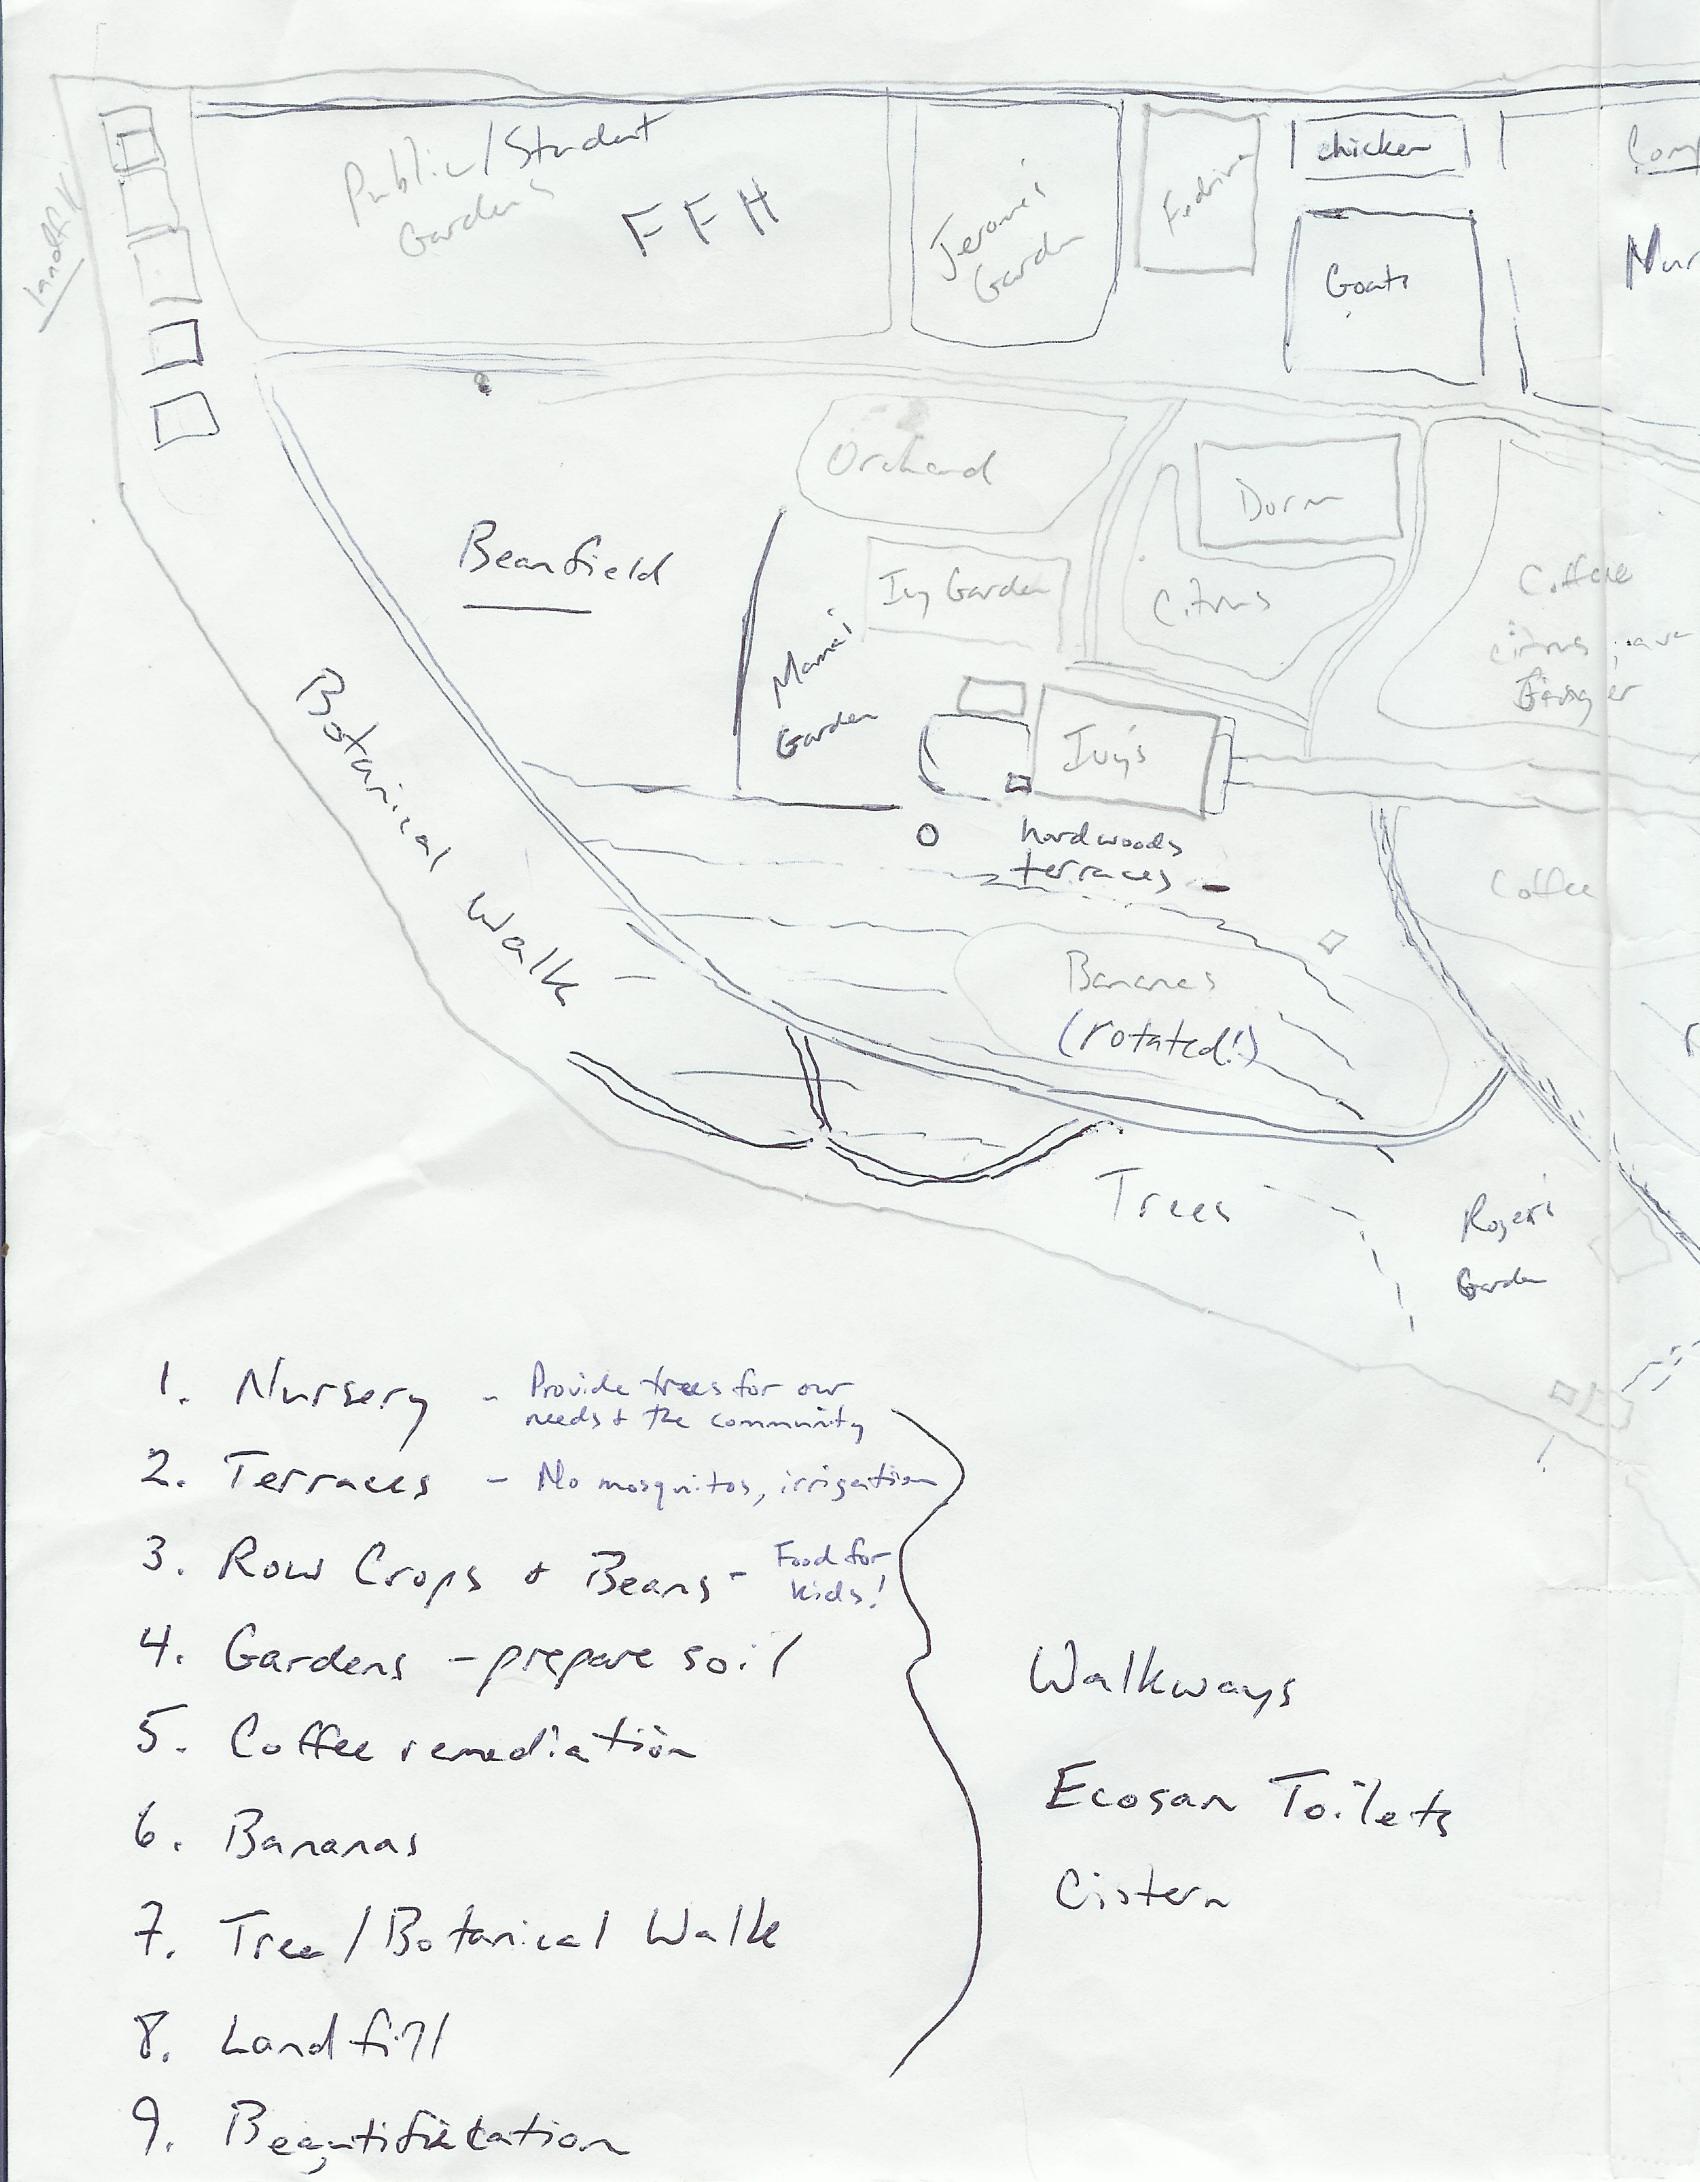 landfill
Public/Student
Gardens
FFH
Jerome's
Garden
chicken
Goats
Orchard
Dorm
Beanfield
Ivy Garden
Citrus
Coffee
citrus
Mama's
Garden
Ivy's
hardwoods
terraces -
Coffee
Botanical Walk -
Bananas
(rotated!)
Trees
Roger's
Garden
1. Nursery - Provide trees for our
needs + the community
2. Terraces - No mosquitos, irrigation
3. Row Crops + Beans - Food for
kids!
4. Gardens - prepare soil
5. Coffee remediation
6. Bananas
7. Tree/Botanical Walk
8. Landfill
9. Beautification
Walkways
Ecosan Toilets
Cistern